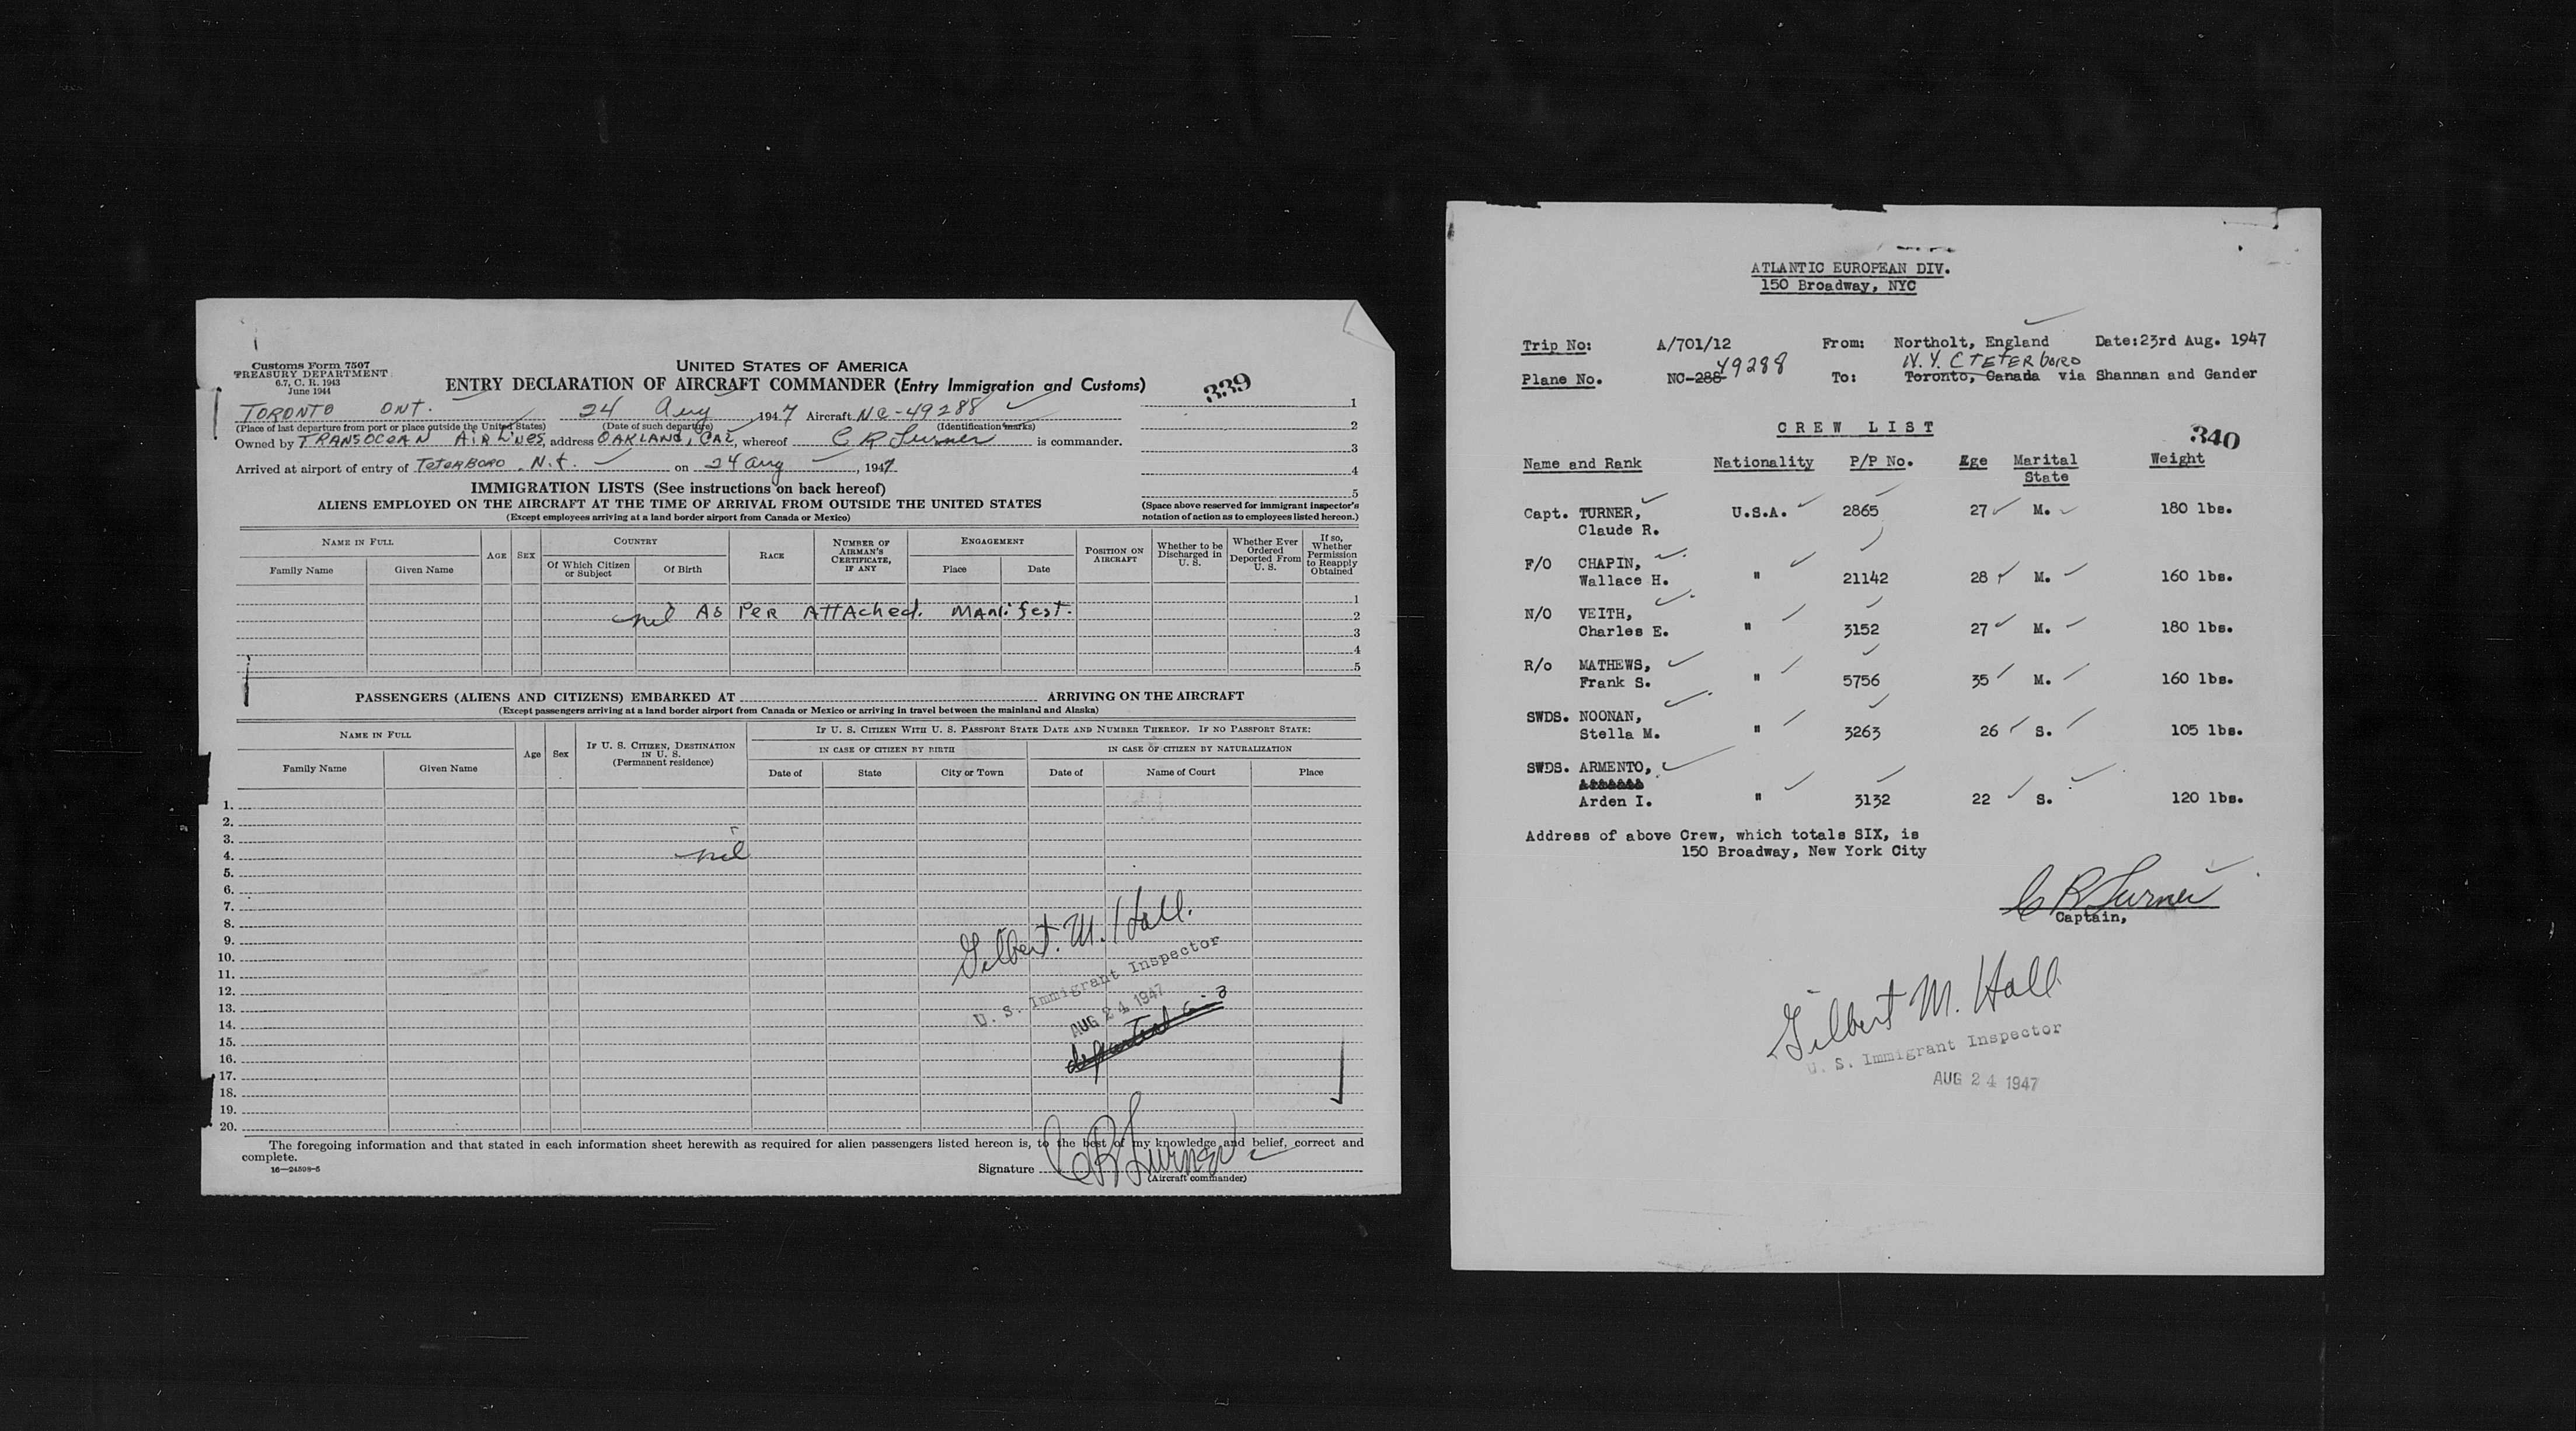 Customs Form 7507
TREASURY DEPARTMENT
6.7, C. R. 1943
June 1944
UNITED STATES OF AMERICA
ENTRY DECLARATION OF AIRCRAFT COMMANDER (Entry Immigration and Customs)
339
TORONTO ONT. 24 Aug, 1947 Aircraft NC-49288
(Place of last departure from port or place outside the United States) (Date of such departure) (Identification marks)
Owned by TRANSOCEAN AIR LINES, address OAKLAND, CAL, whereof C R Turner is commander.
Arrived at airport of entry of TETERBORO. N.J. on 24 aug, 1947
1
2
3
4
5
(Space above reserved for immigrant inspector's
notation of action as to employees listed hereon.)
IMMIGRATION LISTS (See instructions on back hereof)
ALIENS EMPLOYED ON THE AIRCRAFT AT THE TIME OF ARRIVAL FROM OUTSIDE THE UNITED STATES
(Except employees arriving at a land border airport from Canada or Mexico)
NAME IN FULL
Family Name Given Name
AGE SEX
COUNTRY
Of Which Citizen
or Subject
Of Birth
RACE
NUMBER OF
AIRMAN'S
CERTIFICATE,
IF ANY
ENGAGEMENT
Place Date
POSITION ON
AIRCRAFT
Whether to be
Discharged in
U. S.
Whether Ever
Ordered
Deported From
U. S.
If so,
Whether
Permission
to Reapply
Obtained
1
nil AS PER ATTAched. MANifest. 2
3
4
5
PASSENGERS (ALIENS AND CITIZENS) EMBARKED AT ARRIVING ON THE AIRCRAFT
(Except passengers arriving at a land border airport from Canada or Mexico or arriving in travel between the mainland and Alaska)
NAME IN FULL
Family Name Given Name
Age Sex
IF U. S. CITIZEN, DESTINATION
IN U. S.
(Permanent residence)
IF U. S. CITIZEN WITH U. S. PASSPORT STATE DATE AND NUMBER THEREOF. IF NO PASSPORT STATE:
IN CASE OF CITIZEN BY BIRTH IN CASE OF CITIZEN BY NATURALIZATION
Date of State City or Town Date of Name of Court Place
1.
2.
3.
4. nil
5.
6.
7.
8.
9.
10.
11.
12.
13.
14.
15.
16.
17.
18.
19.
20.
Gilbert. M. Hall.
U. S. Immigrant Inspector
AUG 24 1947
The foregoing information and that stated in each information sheet herewith as required for alien passengers listed hereon is, to the best of my knowledge and belief, correct and
complete.
16—24598-5
Signature C R Turner
(Aircraft commander)
ATLANTIC EUROPEAN DIV.
150 Broadway, NYC
Trip No: A/701/12 From: Northolt, England Date:23rd Aug. 1947
49288 N.Y. CTETERboro
Plane No. NC-288 To: Toronto, Canada via Shannan and Gander
CREW LIST
340
Name and Rank Nationality P/P No. Age Marital Weight
State
Capt. TURNER, U.S.A. 2865 27 M. 180 lbs.
Claude R.
F/O CHAPIN,
Wallace H. " 21142 28 M. 160 lbs.
N/O VEITH,
Charles E. " 3152 27 M. 180 lbs.
R/o MATHEWS,
Frank S. " 5756 35 M. 160 lbs.
SWDS. NOONAN,
Stella M. " 3263 26 S. 105 lbs.
SWDS. ARMENTO,
Arden I. " 3132 22 S. 120 lbs.
Address of above Crew, which totals SIX, is
150 Broadway, New York City
C R Turner
Captain,
Gilbert M. Hall
U. S. Immigrant Inspector
AUG 24 1947